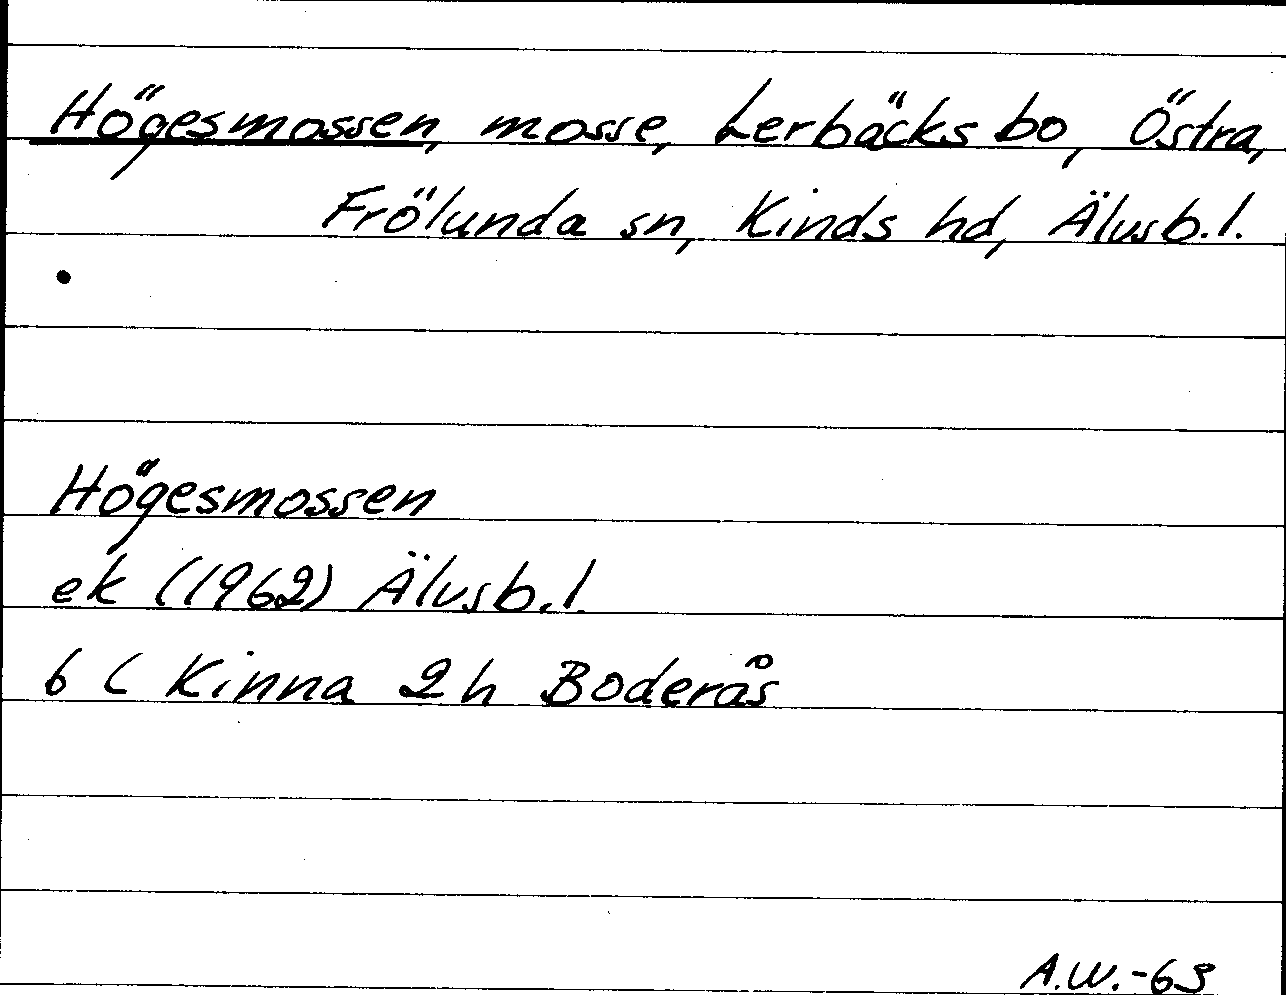 Högesmossen, mosse, Lerbäcks bo, Östra,
Frölunda sn, Kinds hd, Älvsb.l.
Högesmossen
ek (1962) Älvsb.l.
6 C Kinna 2h Boderås
A.W.-63